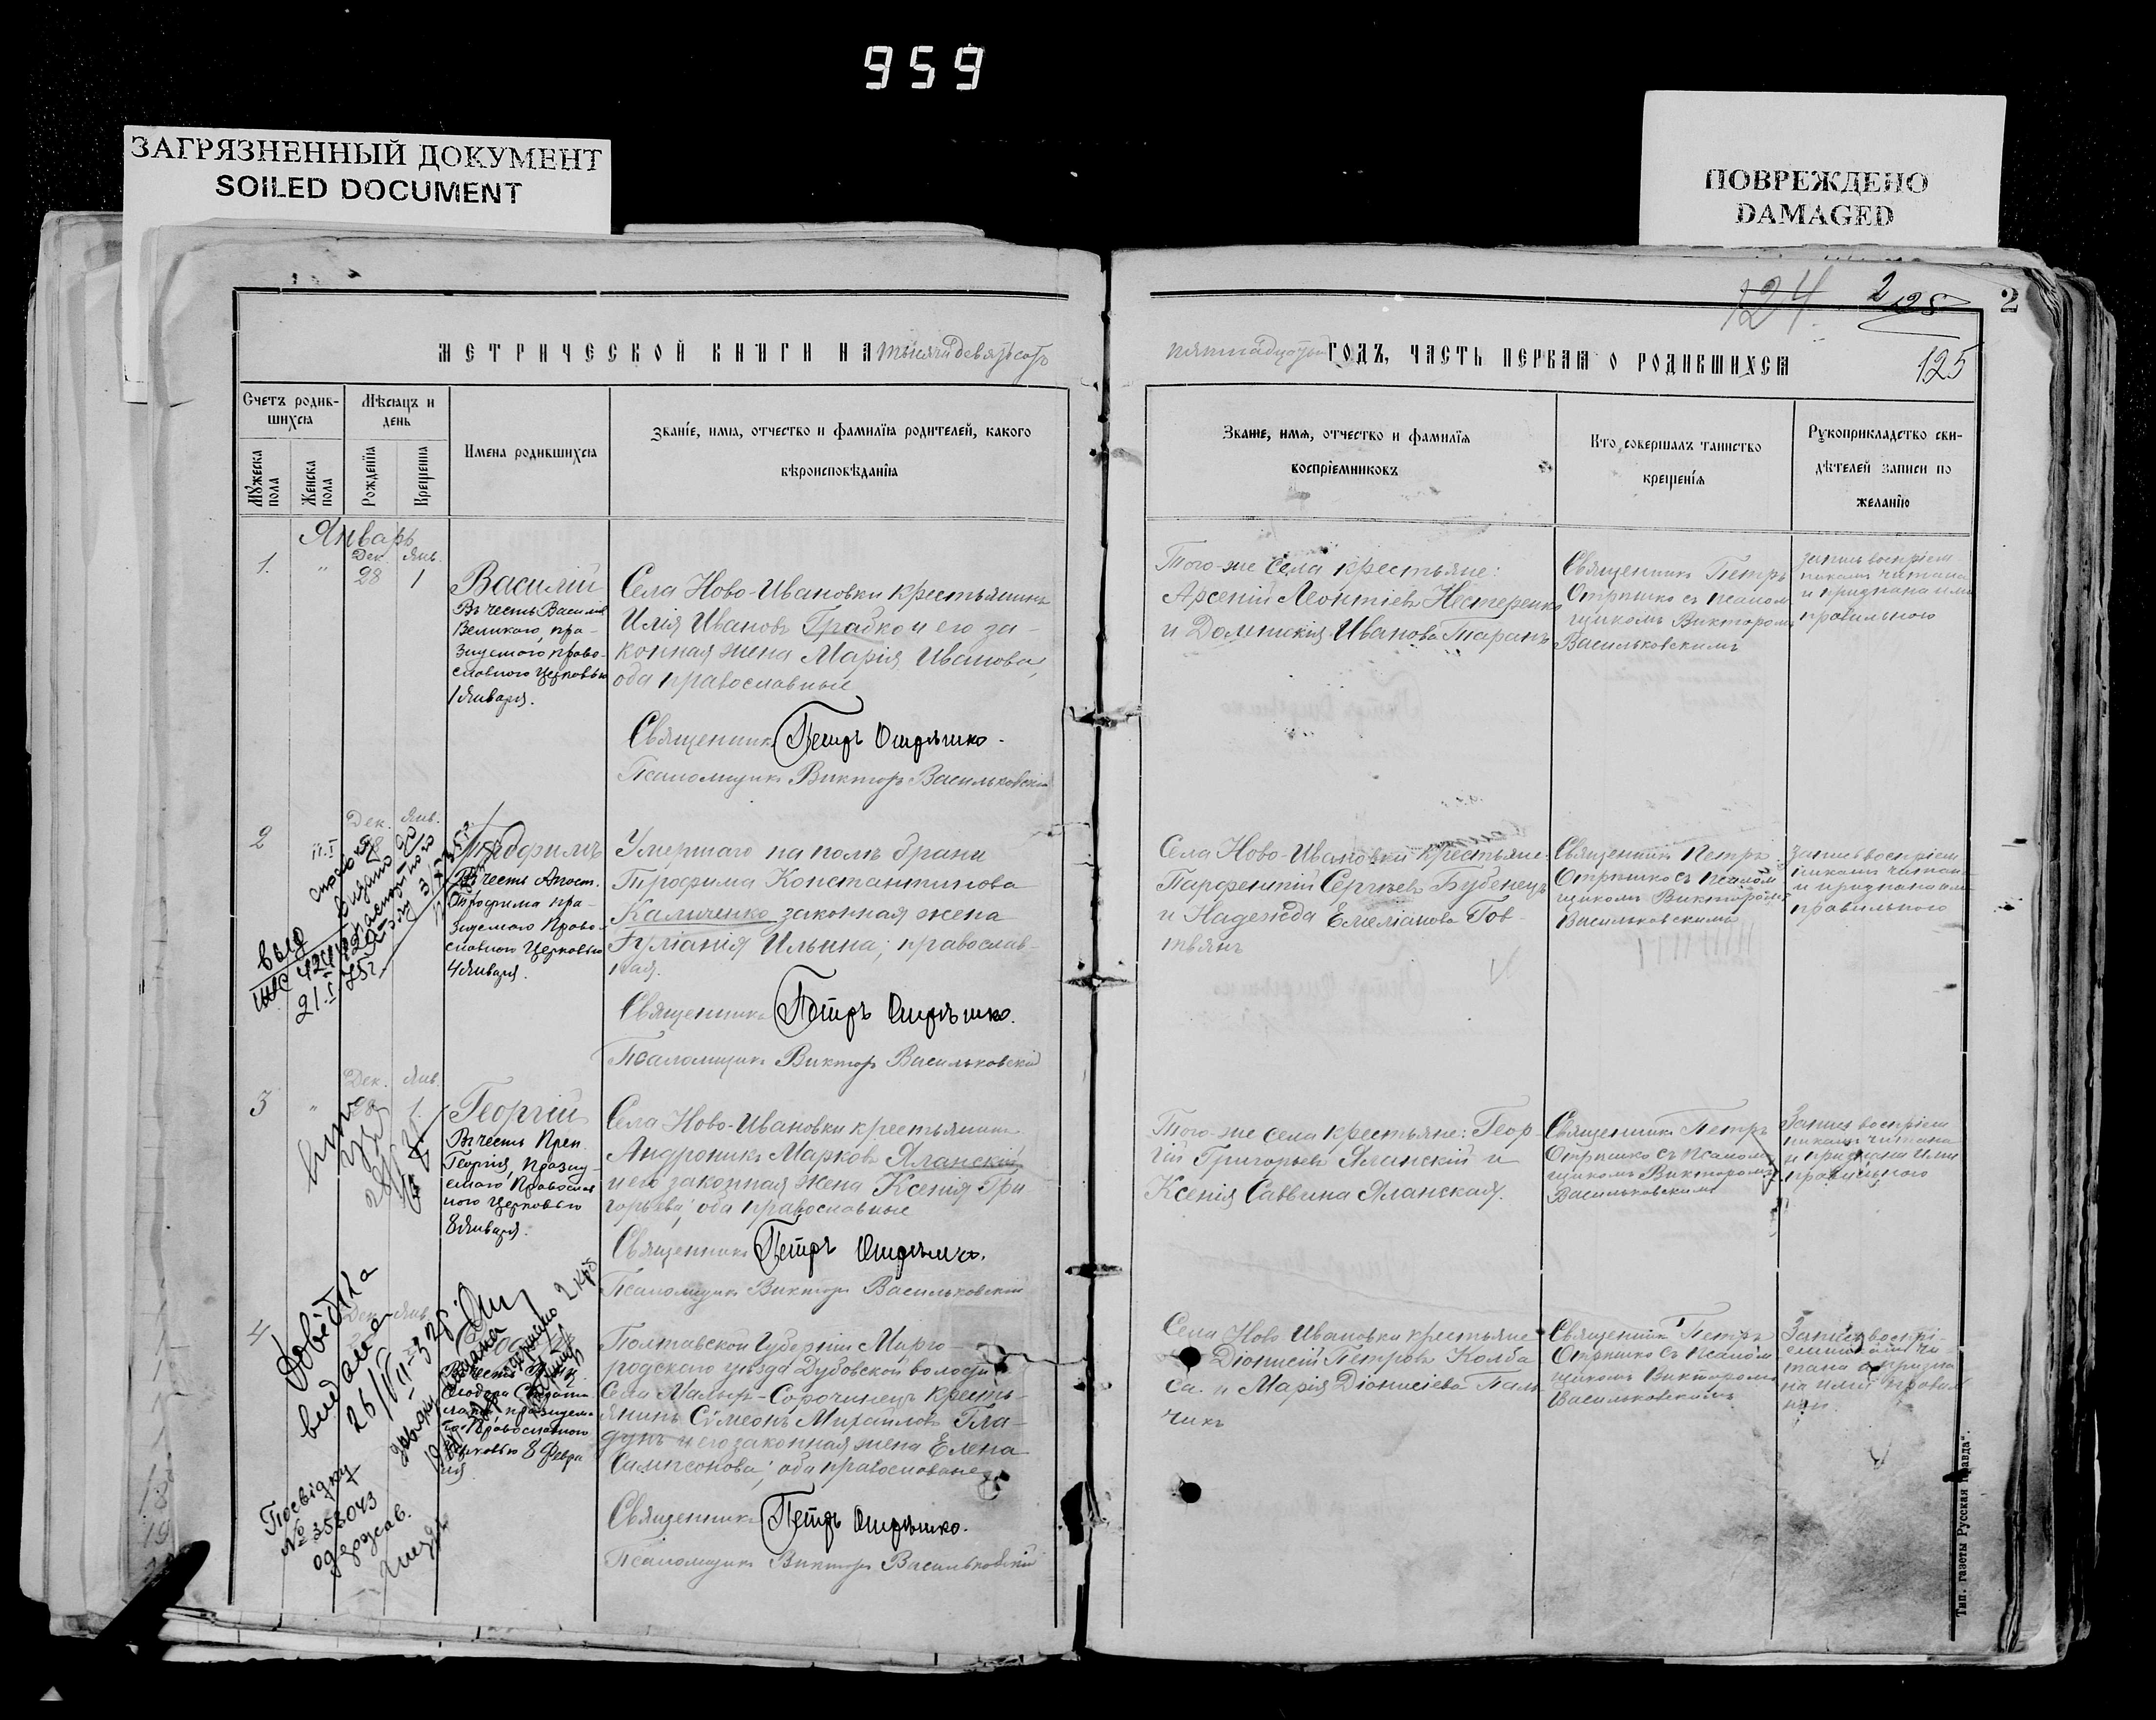 959
ЗАГРЯЗНЕННЫЙ ДОКУМЕНТ
SOILED DOCUMENT
ПОВРЕЖДЕНО
DAMAGED
124 2 125 2
125
МЕТРИЧЕСКОЙ КНИГИ НА тысяча девятьсотъ
пятнадцатый ГОДЪ, ЧАСТЬ ПЕРВАЯ О РОДИВШИХСЯ
Счетъ родив-
шихся
Мужеска пола
Женска пола
Мѣсяцъ и
день
Рожденія
Крещенія
Имена родившихся
Званіе, имя, отчество и фамилія родителей, какого
вѣроисповѣданія
Званіе, имя, отчество и фамилія
воспріемниковъ
Кто совершалъ таинство
крещенія
Рукоприкладство сви-
дѣтелей записи по
желанію
Январь
1. " Дек. 28 Янв. 1
Василій
Въ честь Василія
Великаго, пра-
зднуемаго право-
славною Церковью
1 Января.
Села Ново-Ивановки крестьянинъ
Илія Ивановъ Грабко и его за-
конная жена Марія Иванова,
оба православные
Священникъ Петръ Отрѣшко.
Псаломщикъ Викторъ Васильковскій
Того-же села крестьяне:
Арсеній Леонтіевъ Нестеренко
и Домникія Иванова Таранъ
Священникъ Петръ
Отрѣшко съ псалом
щикомъ Викторомъ
Васильковскимъ
Запись воспріем
никамъ читана
и признана ими
правильного
2 Дек. Янв.
Трофимъ
Въ честь Апост.
Трофима пра-
зднуемаго Право-
славною Церковью
4 Января.
Умершаго на полѣ брани
Трофима Константинова
Каличенко законная жена
Іуліанія Ильина; православ-
ная.
Священникъ Петръ Отрѣшко.
Псаломщикъ Викторъ Васильковскій
Села Ново-Ивановки крестьяне:
Парфентій Сергѣевъ Бубенецъ
и Надежда Емеліанова Гов-
твянъ
Священникъ Петръ
Отрѣшко съ псалом
щикомъ Викторомъ
Васильковскимъ
Запись воспріем
никамъ читана
и признана ими
правильного
3 " Дек. 28 Янв. 1.
Георгій
Въ честь Преп.
Георгія, праздну-
емаго Православ
ною Церковью
8 Января.
Села Ново-Ивановки крестьянинъ
Андроникъ Марковъ Яланскій
и его законная жена Ксенія Гри
горьева, оба православные
Священникъ Петръ Отрѣшко.
Псаломщикъ Викторъ Васильковскій
Того-же села крестьяне: Геор-
гій Григорьевъ Яланскій и
Ксенія Саввина Яланская.
Священникъ Петръ
Отрѣшко съ псалом
щикомъ Викторомъ
Васильковскимъ
Запись воспріем
никамъ читана
и признана ими
правильного
Довідка
видана
26/VII-32
4 Дек. Янв.
Православною
Церковью 8 Февра
ля
Посвідку
№ 358043
одержав.
Полтавской Губерніи Мирго-
родского уѣзда Дубовской волости
Села Малыхъ-Сорочинецъ кресть-
янинъ Сѵмеонъ Михаиловъ Гла-
дунъ и его законная жена Елена
Сампсонова; оба православные
Священникъ Петръ Отрѣшко.
Псаломщикъ Викторъ Васильковскій
Села Ново Ивановки крестьяне
Діонисій Петровъ Колба
са. и Марія Діонисіева Паль
чикъ
Священникъ Петръ
Отрѣшко съ псалом
щикомъ Викторомъ
Васильковскимъ
Запись воспрі-
емникамъ чи-
тана и призна
на ими правил
Тип. газеты Русская правда".